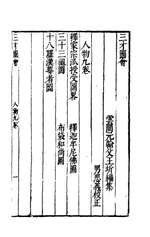 三才圖會
雲間元翰父王圻編集
男思義校正
人物九卷
釋家宗派授受圖畧　釋迦牟尼佛圖
三十三祖圖　布袋和尚圖
十八羅漢尊者圖
三才圖會　人物九卷　一